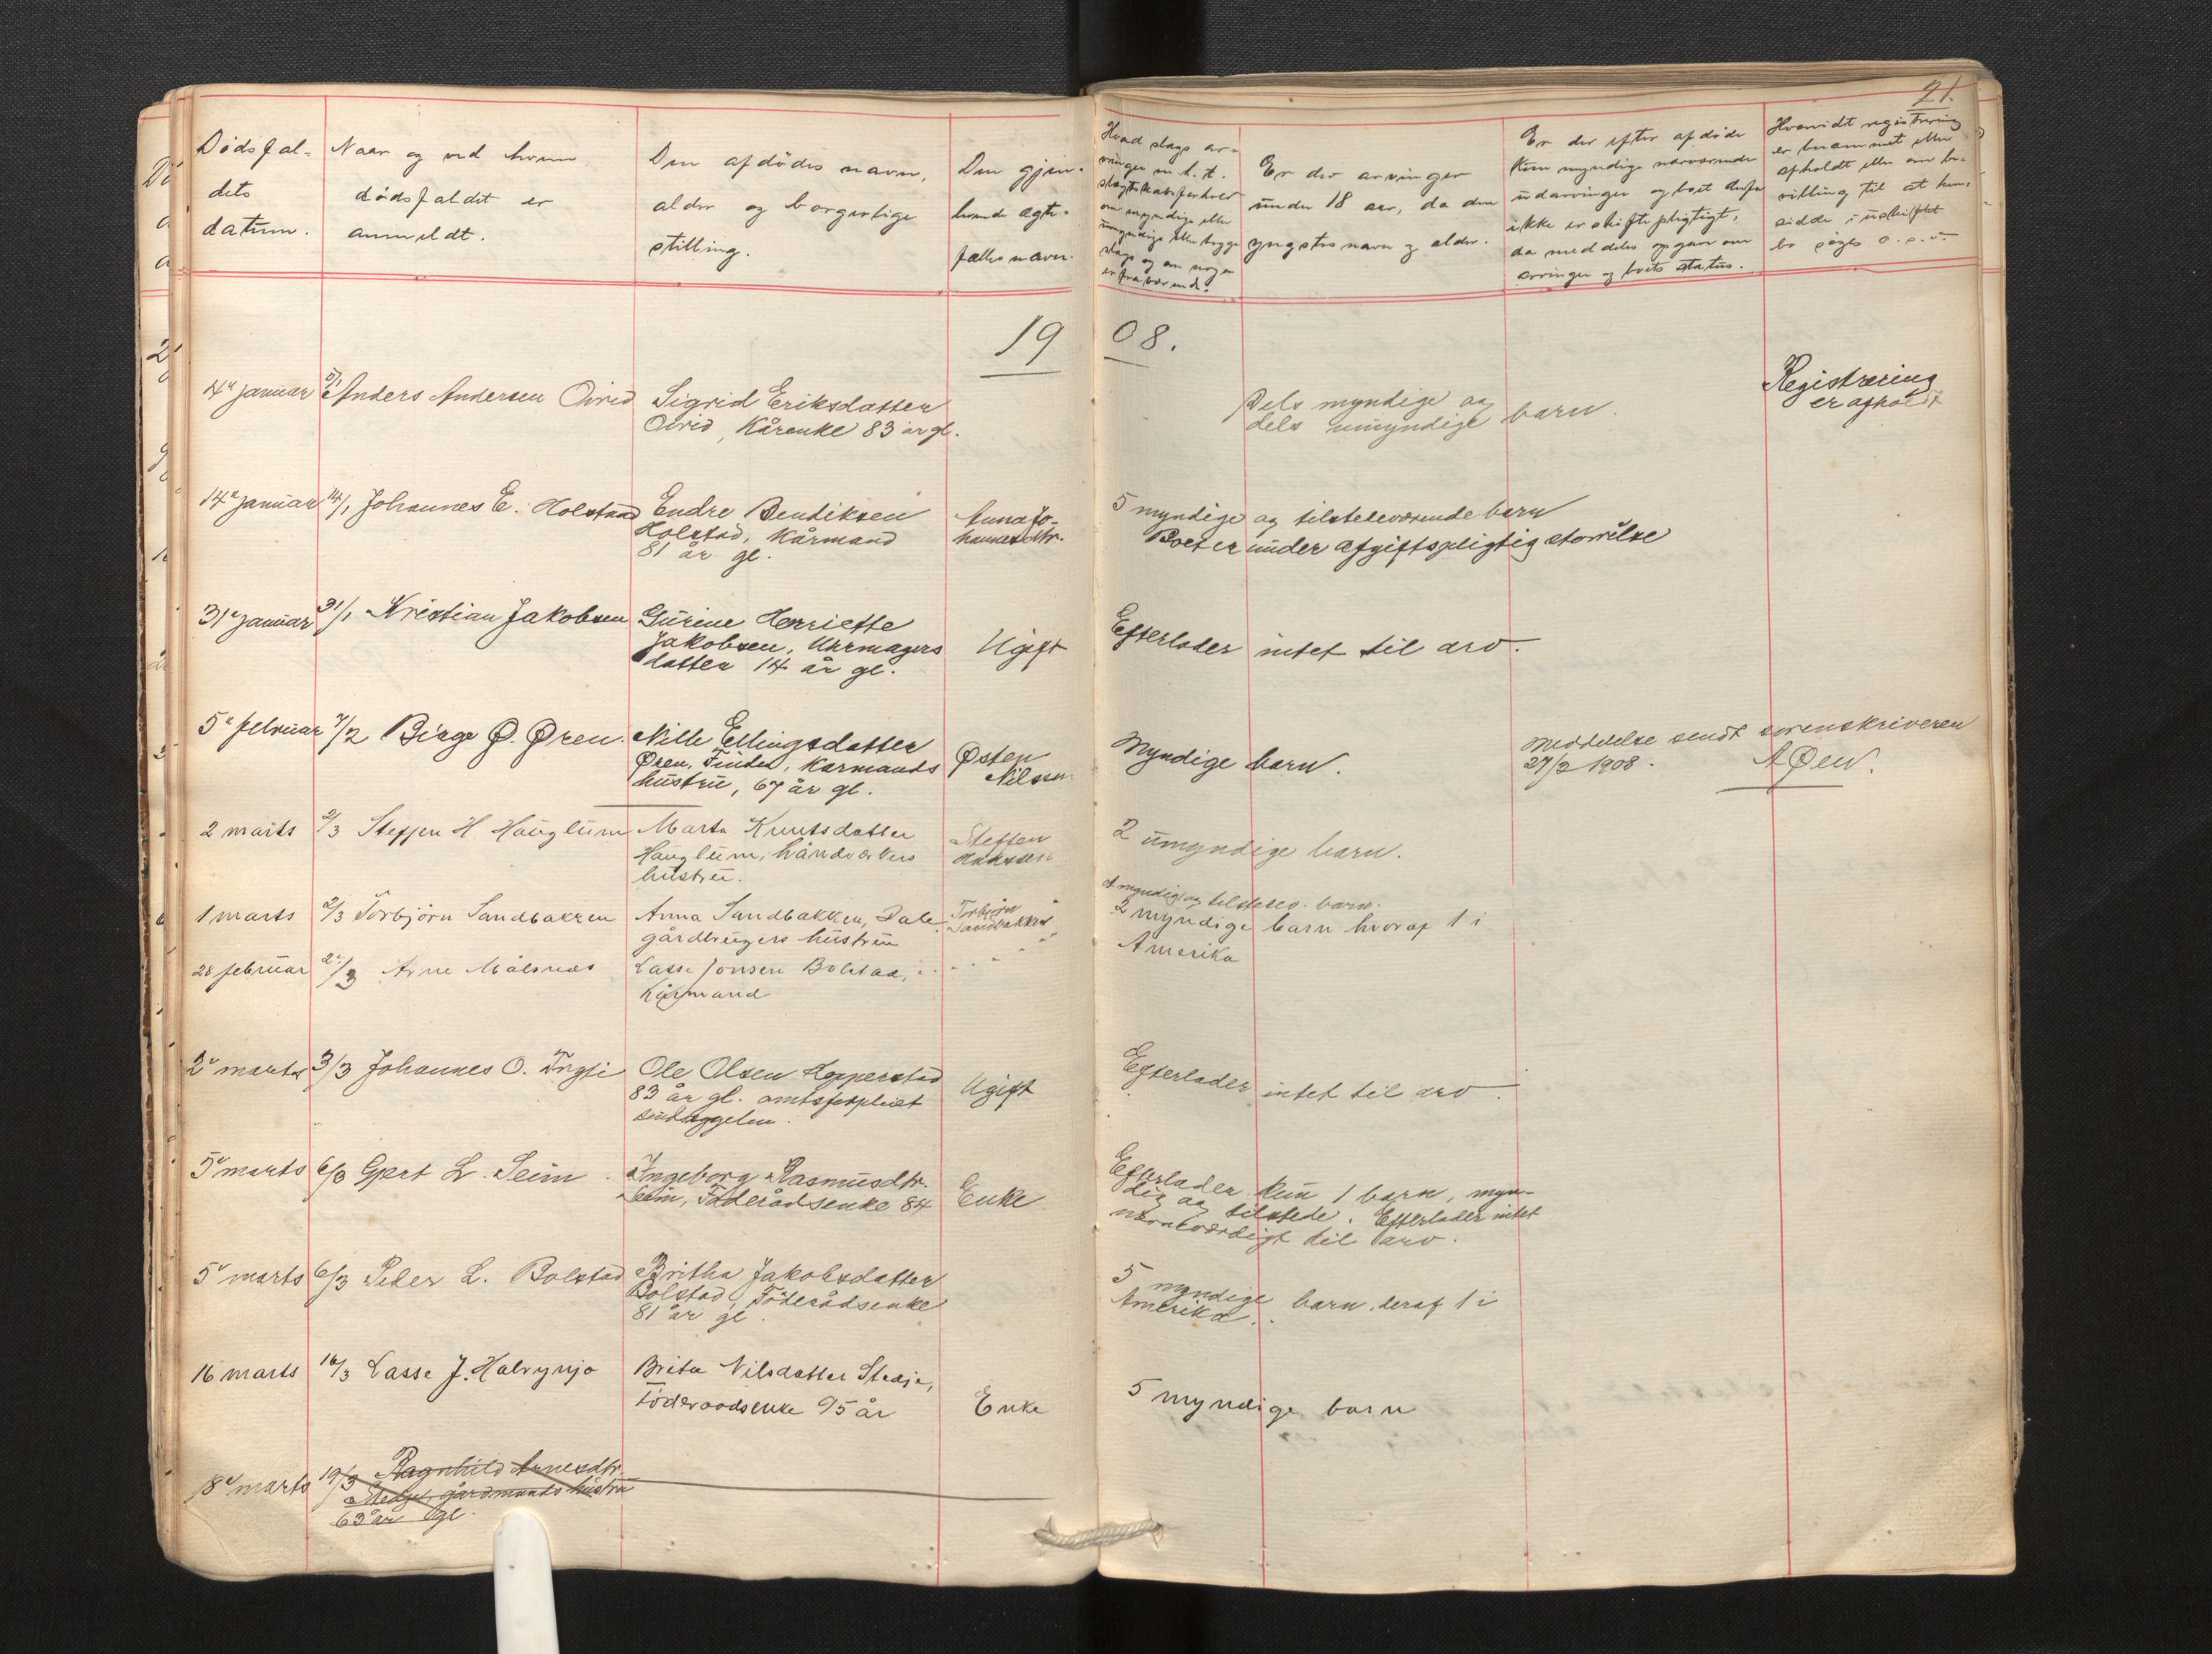 21.
Dödsfal-
dets
datum.
Naar og ved hvem
dödsfaldet er
anmeldt.
Den afdödes navn,
alder og borgerlige
stilling.
Den gjen-
levende ægte-
fælles navn.
Hvad slags ar-
vinger m. h. t.
slægtskabsforhold
om myndige eller
umyndige eller begge
slags og om nogen
er fraværende.
Er der arvinger
under 18 aar, da den
yngstes navn og alder.
Er der efter afdöde
kun myndige nærværende
udarvinger og boet derfor
ikke er skiftepligtigt,
da meddeles opgave om
arvinger og boets status.
Hvorvidt registrering
er berammet eller
afholdt eller om be-
villing til at hen-
sidde i uskiftet
bo söges o. s. v.
19 08.
4de januar 5/1 Anders Andersen Qvred
Sigrid Eriksdatter
Qvred, Kårenke 83 år gl.
Dels myndige og
dels umyndige barn.
Registrering
er afholdt
14de januar 14/1 Johannes E. Holstad
Endre Bendiksen
Holstad, Kårmand
81 år gl.
Anna Jo-
hannesdtr.
5 myndige og tilstedeværende barn
Boet er under afgiftspligtig störrelse
31te januar 31/1 Kristian Jakobsen
Gurine Henriette
Jakobsen, Uhrmagers
datter 14 år gl.
Ugift
Efterlader intet til arv.
5te februar 7/2 Börge Ø. Øren.
Nille Ellingsdatter
Øren, Finden, Karmands
hustru, 67 år gl.
Østen
Nilssen
Myndige barn.
Meddelelse sendt sorenskriveren
27/2 1908.
A Øen.
2 marts 2/3 Steffen H. Hauglum
Marta Knutsdatter
Hauglum, håndverkers
hustru.
Steffen
Hanssen
2 umyndige barn.
1 marts 2/3 Torbjörn Sandbakken
Anna Sandbakken, Dale
gårdbrugers hustru
Torbjörn
Sandbakken
1 myndig og tilstedev. barn.
28 februar 2/3 Arne Målsnes
Lasse Jonsen Bolstad,
Kårmand
2 myndige barn hvoraf 1 i
Amerika
2de marts 3/3 Johannes O. Tryti
Ole Olsen Hopperstad
83 år gl. amtsforpleiet
sindssygelem.
Ugift
Efterlader intet til arv.
5te marts 6/3 Gjert L. Seim
Ingeborg Rasmusdtr.
Seim, Föderådsenke 84
Enke
Efterlader kun 1 barn, myn-
dig og tilstede. Efterlader intet
nevneværdigt til arv.
5te marts 6/3 Peder L. Bolstad
Britha Jakobsdatter
Bolstad, Föderådsenke
81 år gl
5 myndige barn, deraf 1 i
Amerika.
16 marts 16/3 Lasse J. Halvynjo
Brita Nilsdatter Stedje,
Föderaadsenke 95 år
Enke
5 myndige barn
18de marts 19/3 Ragnhild Arnesdtr.
Stedje, gårdmands hustru
63 år gl.